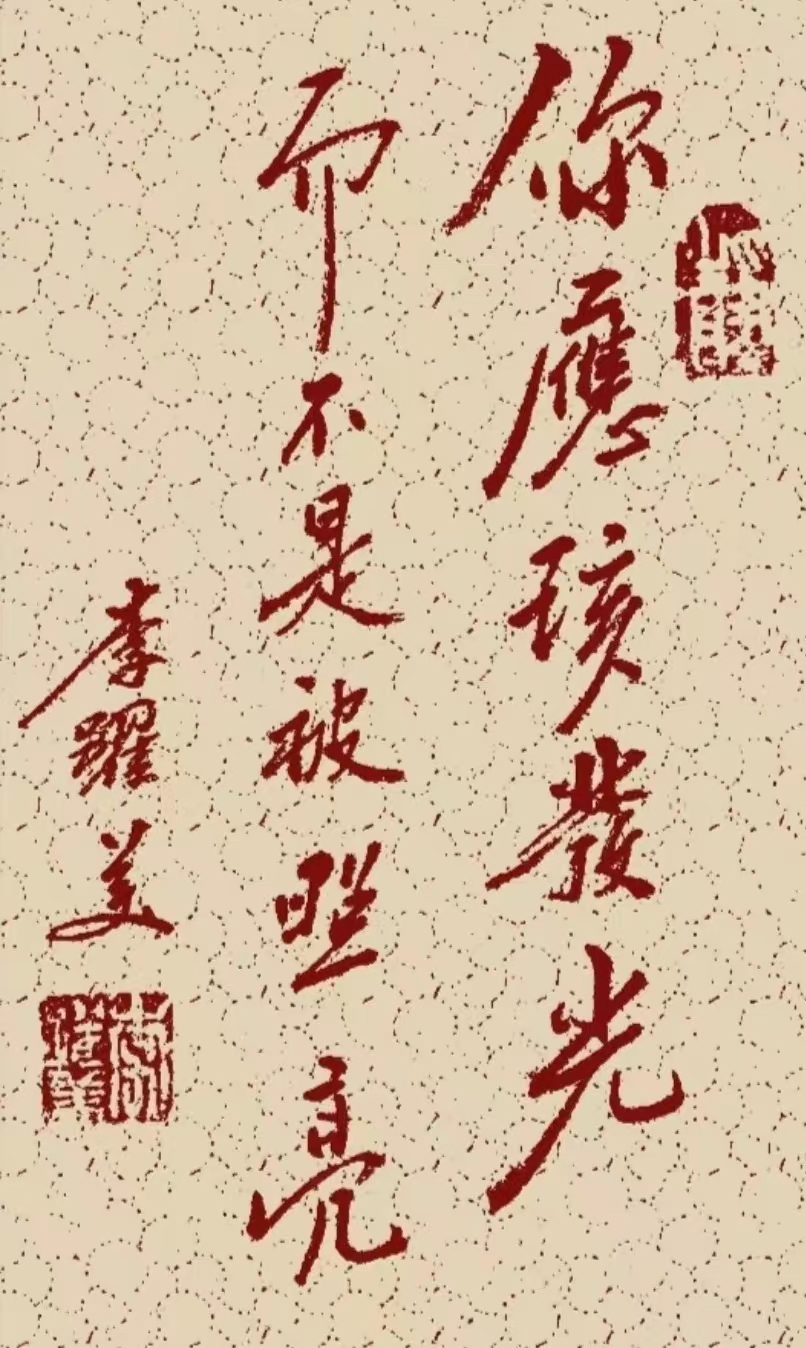 你應该發光
而不是被照亮
李躍美